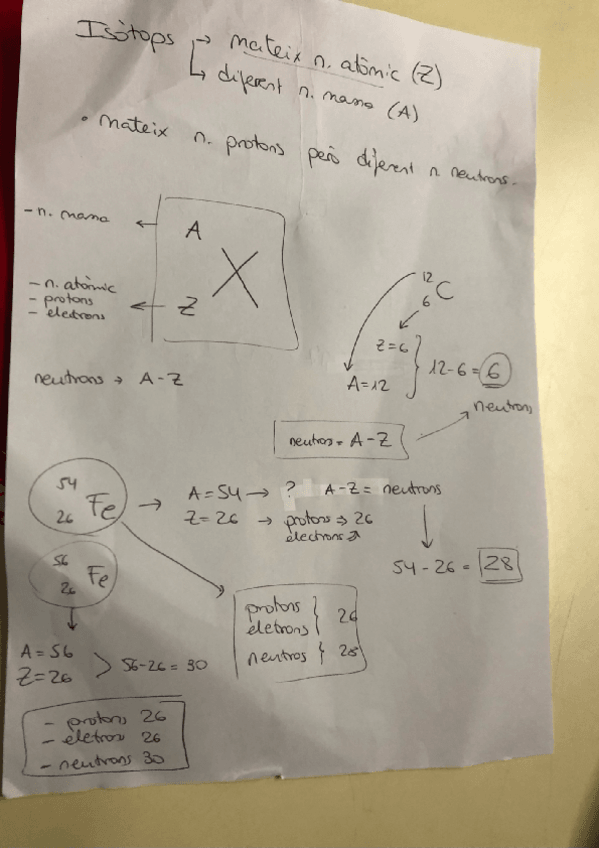 Isòtops → mateix n. atòmic (Z)
↳ diferent n. massa (A)
• mateix n. protons però diferent n neutrons.
- n. massa ← A
X
- n. atòmic
- protons ← Z
- electrons
neutrons → A-Z
12
6 C
Z=6
A=12
12-6 = 6
neutrons
neutros = A-Z
54
26 Fe → A=54 → ? A-Z = neutrons
Z=26 → protons → 26
electrons
54-26 = 28
56
26 Fe
protons
eletrons } 26
neutros } 28
A=56
Z=26 > 56-26 = 30
- protons 26
- eletrons 26
- neutrons 30